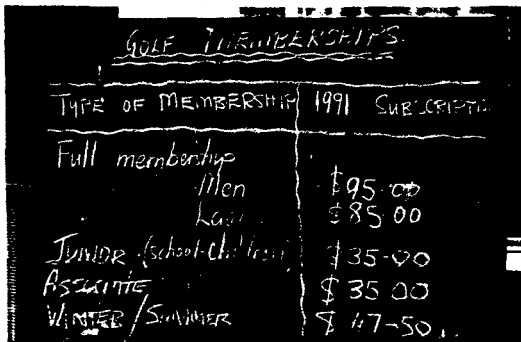 GOLF MEMBERSHIPS
TYPE OF MEMBERSHIP 1991 SUBSCRIPTI
Full membership
Men $95-00
$85 00
JUNIOR (school-children) $35-00
ASSOCIATE $35 00
WINTER/SUMMER $47-50